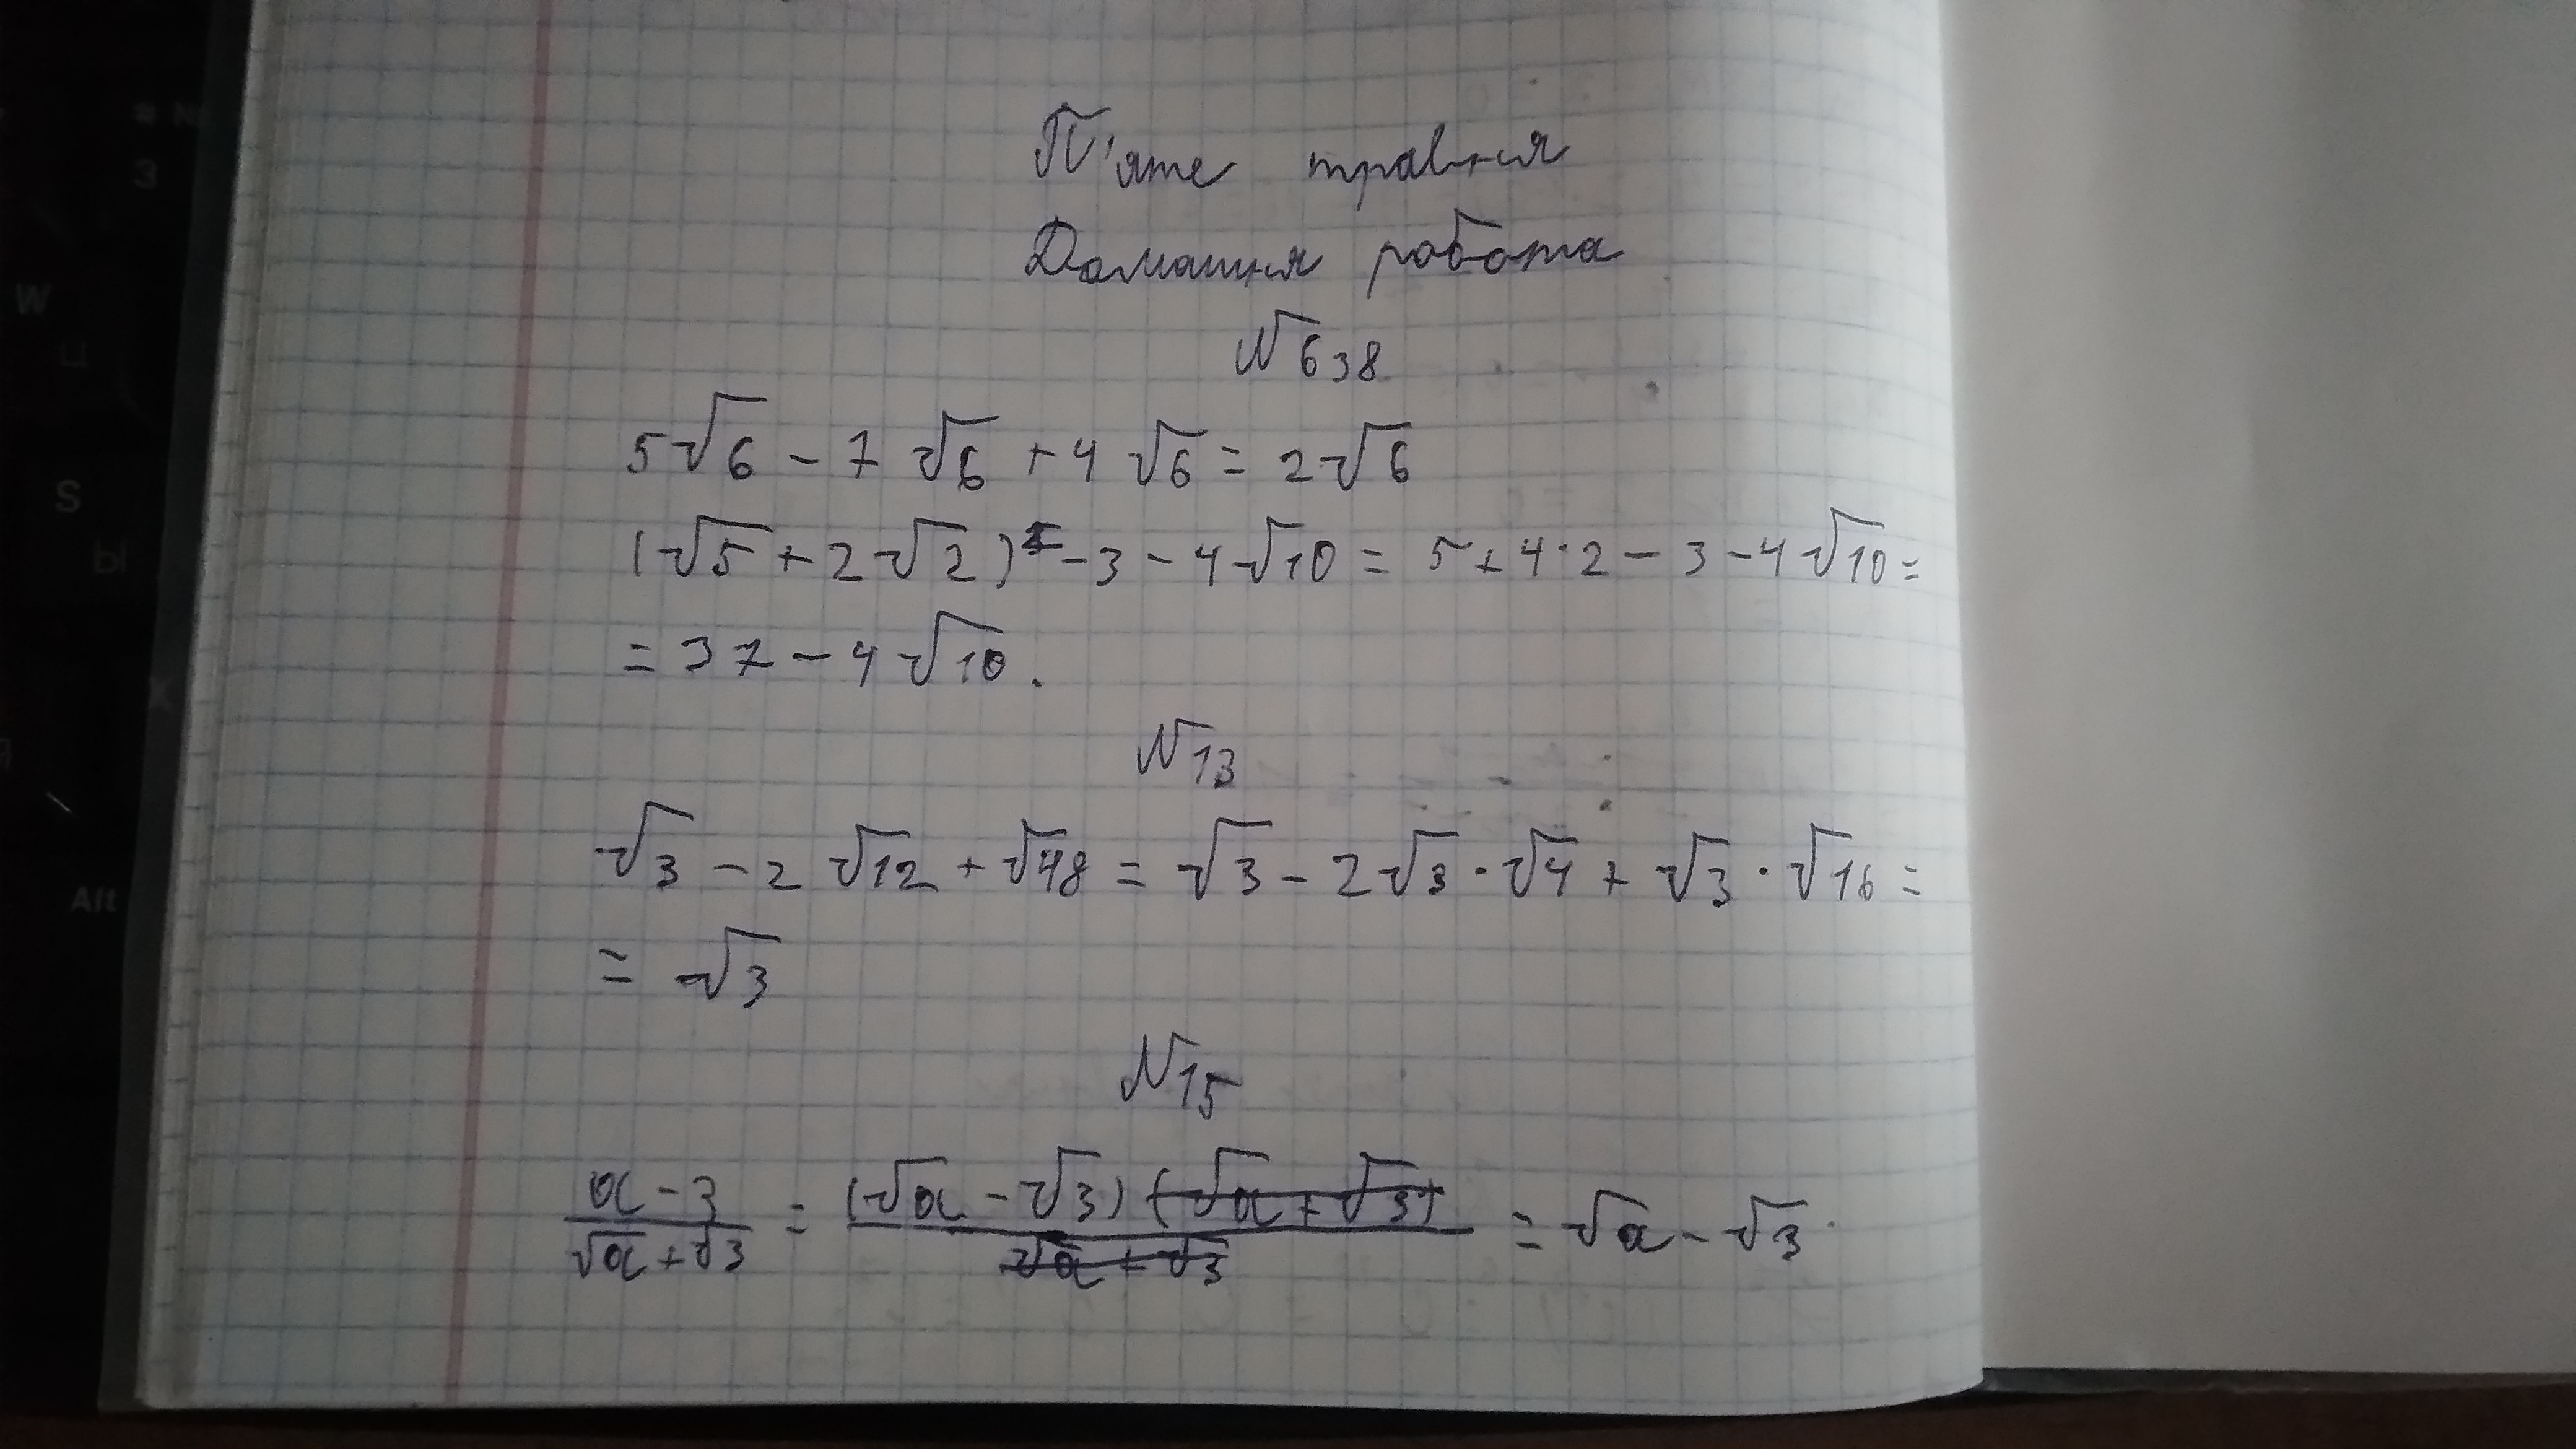 П'яте травня
Домашня робота
№638
5√6 - 7√6 + 4√6 = 2√6
(√5 + 2√2)² - 3 - 4√10 = 5 + 4·2 - 3 - 4√10 =
= 37 - 4√10.
№13
√3 - 2√12 + √48 = √3 - 2√3·√4 + √3·√16 =
= √3
№15
(a - 3)/(√a + √3) = ((√a - √3)(√a + √3))/(√a + √3) = √a - √3